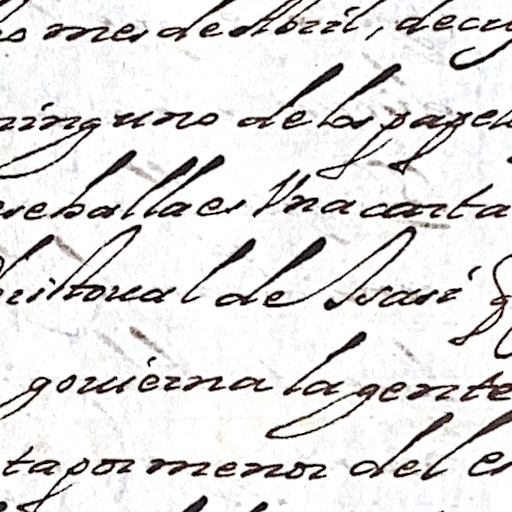 mes de Abril, de cuy
ninguno de los papel
se halla es Vna carta
hristoual de Ysasi
gouierna la gente
ta por menor del es